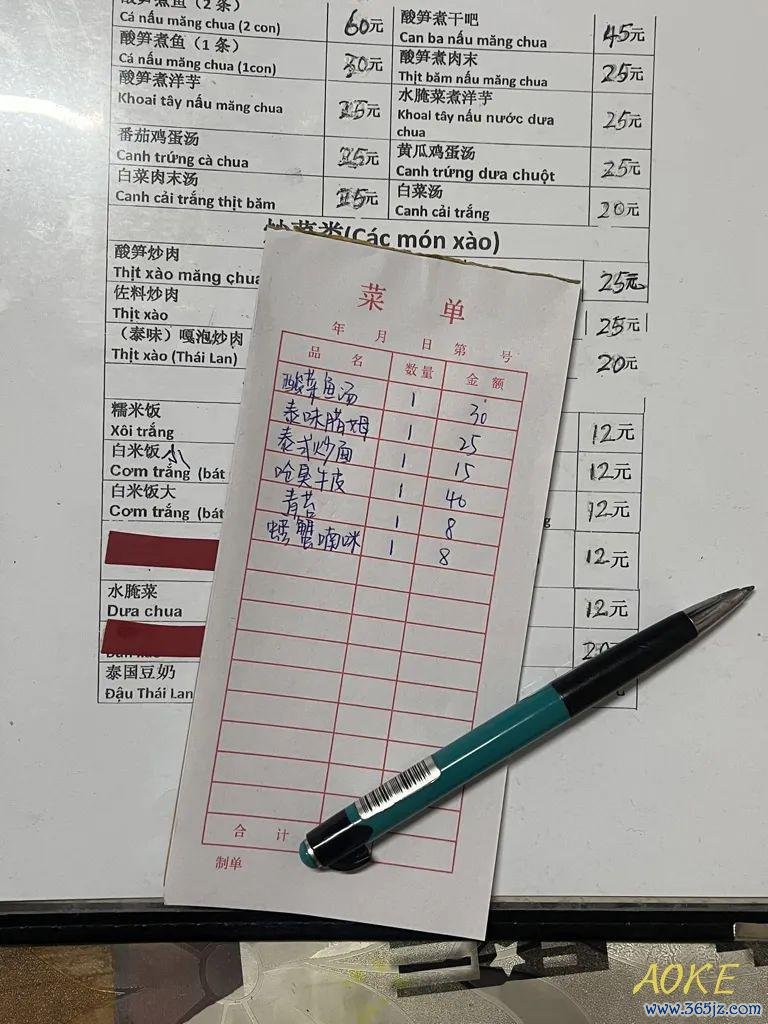 酸笋煮鱼（2 条）
Cá nấu măng chua (2 con)
60元
酸笋煮干吧
Can ba nấu măng chua
45元
酸笋煮鱼（1 条）
Cá nấu măng chua (1con)
30元
酸笋煮肉末
Thịt băm nấu măng chua
25元
酸笋煮洋芋
Khoai tây nấu măng chua
25元
水腌菜煮洋芋
Khoai tây nấu nước dưa
chua
25元
番茄鸡蛋汤
Canh trứng cà chua
25元
黄瓜鸡蛋汤
Canh trứng dưa chuột
25元
白菜肉末汤
Canh cải trắng thịt băm
25元
白菜汤
Canh cải trắng
20元
炒菜类(Các món xào)
酸笋炒肉
Thịt xào măng chua
25元
佐料炒肉
Thịt xào
25元
（泰味）嘎泡炒肉
Thịt xào (Thái Lan)
20元
糯米饭
Xôi trắng
12元
白米饭小
Cơm trắng (bát
12元
白米饭大
Cơm trắng (bát
12元
12元
水腌菜
Dưa chua
12元
泰国豆奶
Đậu Thái Lan
菜 单
年 月 日 第 号
品 名 数量 金 额
酸菜鱼汤 1 30
泰味腊姆 1 25
泰式炒面 1 15
呛臭牛皮 1 40
青苔 1 8
螃蟹喃咪 1 8
合 计
制单
AOKE
www.365jz.com